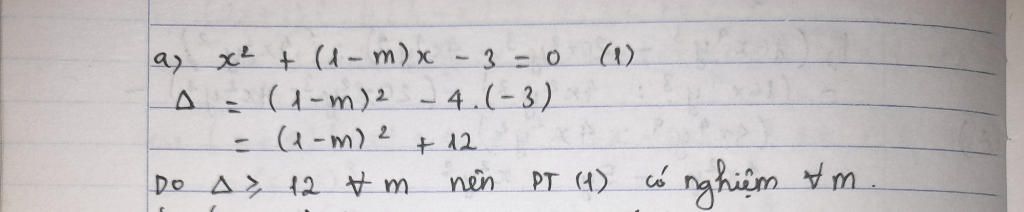 a) x² + (1-m)x - 3 = 0 (1)
Δ = (1-m)² - 4.(-3)
= (1-m)² + 12
Do Δ ≥ 12 ∀ m nên PT (1) có nghiệm ∀ m.